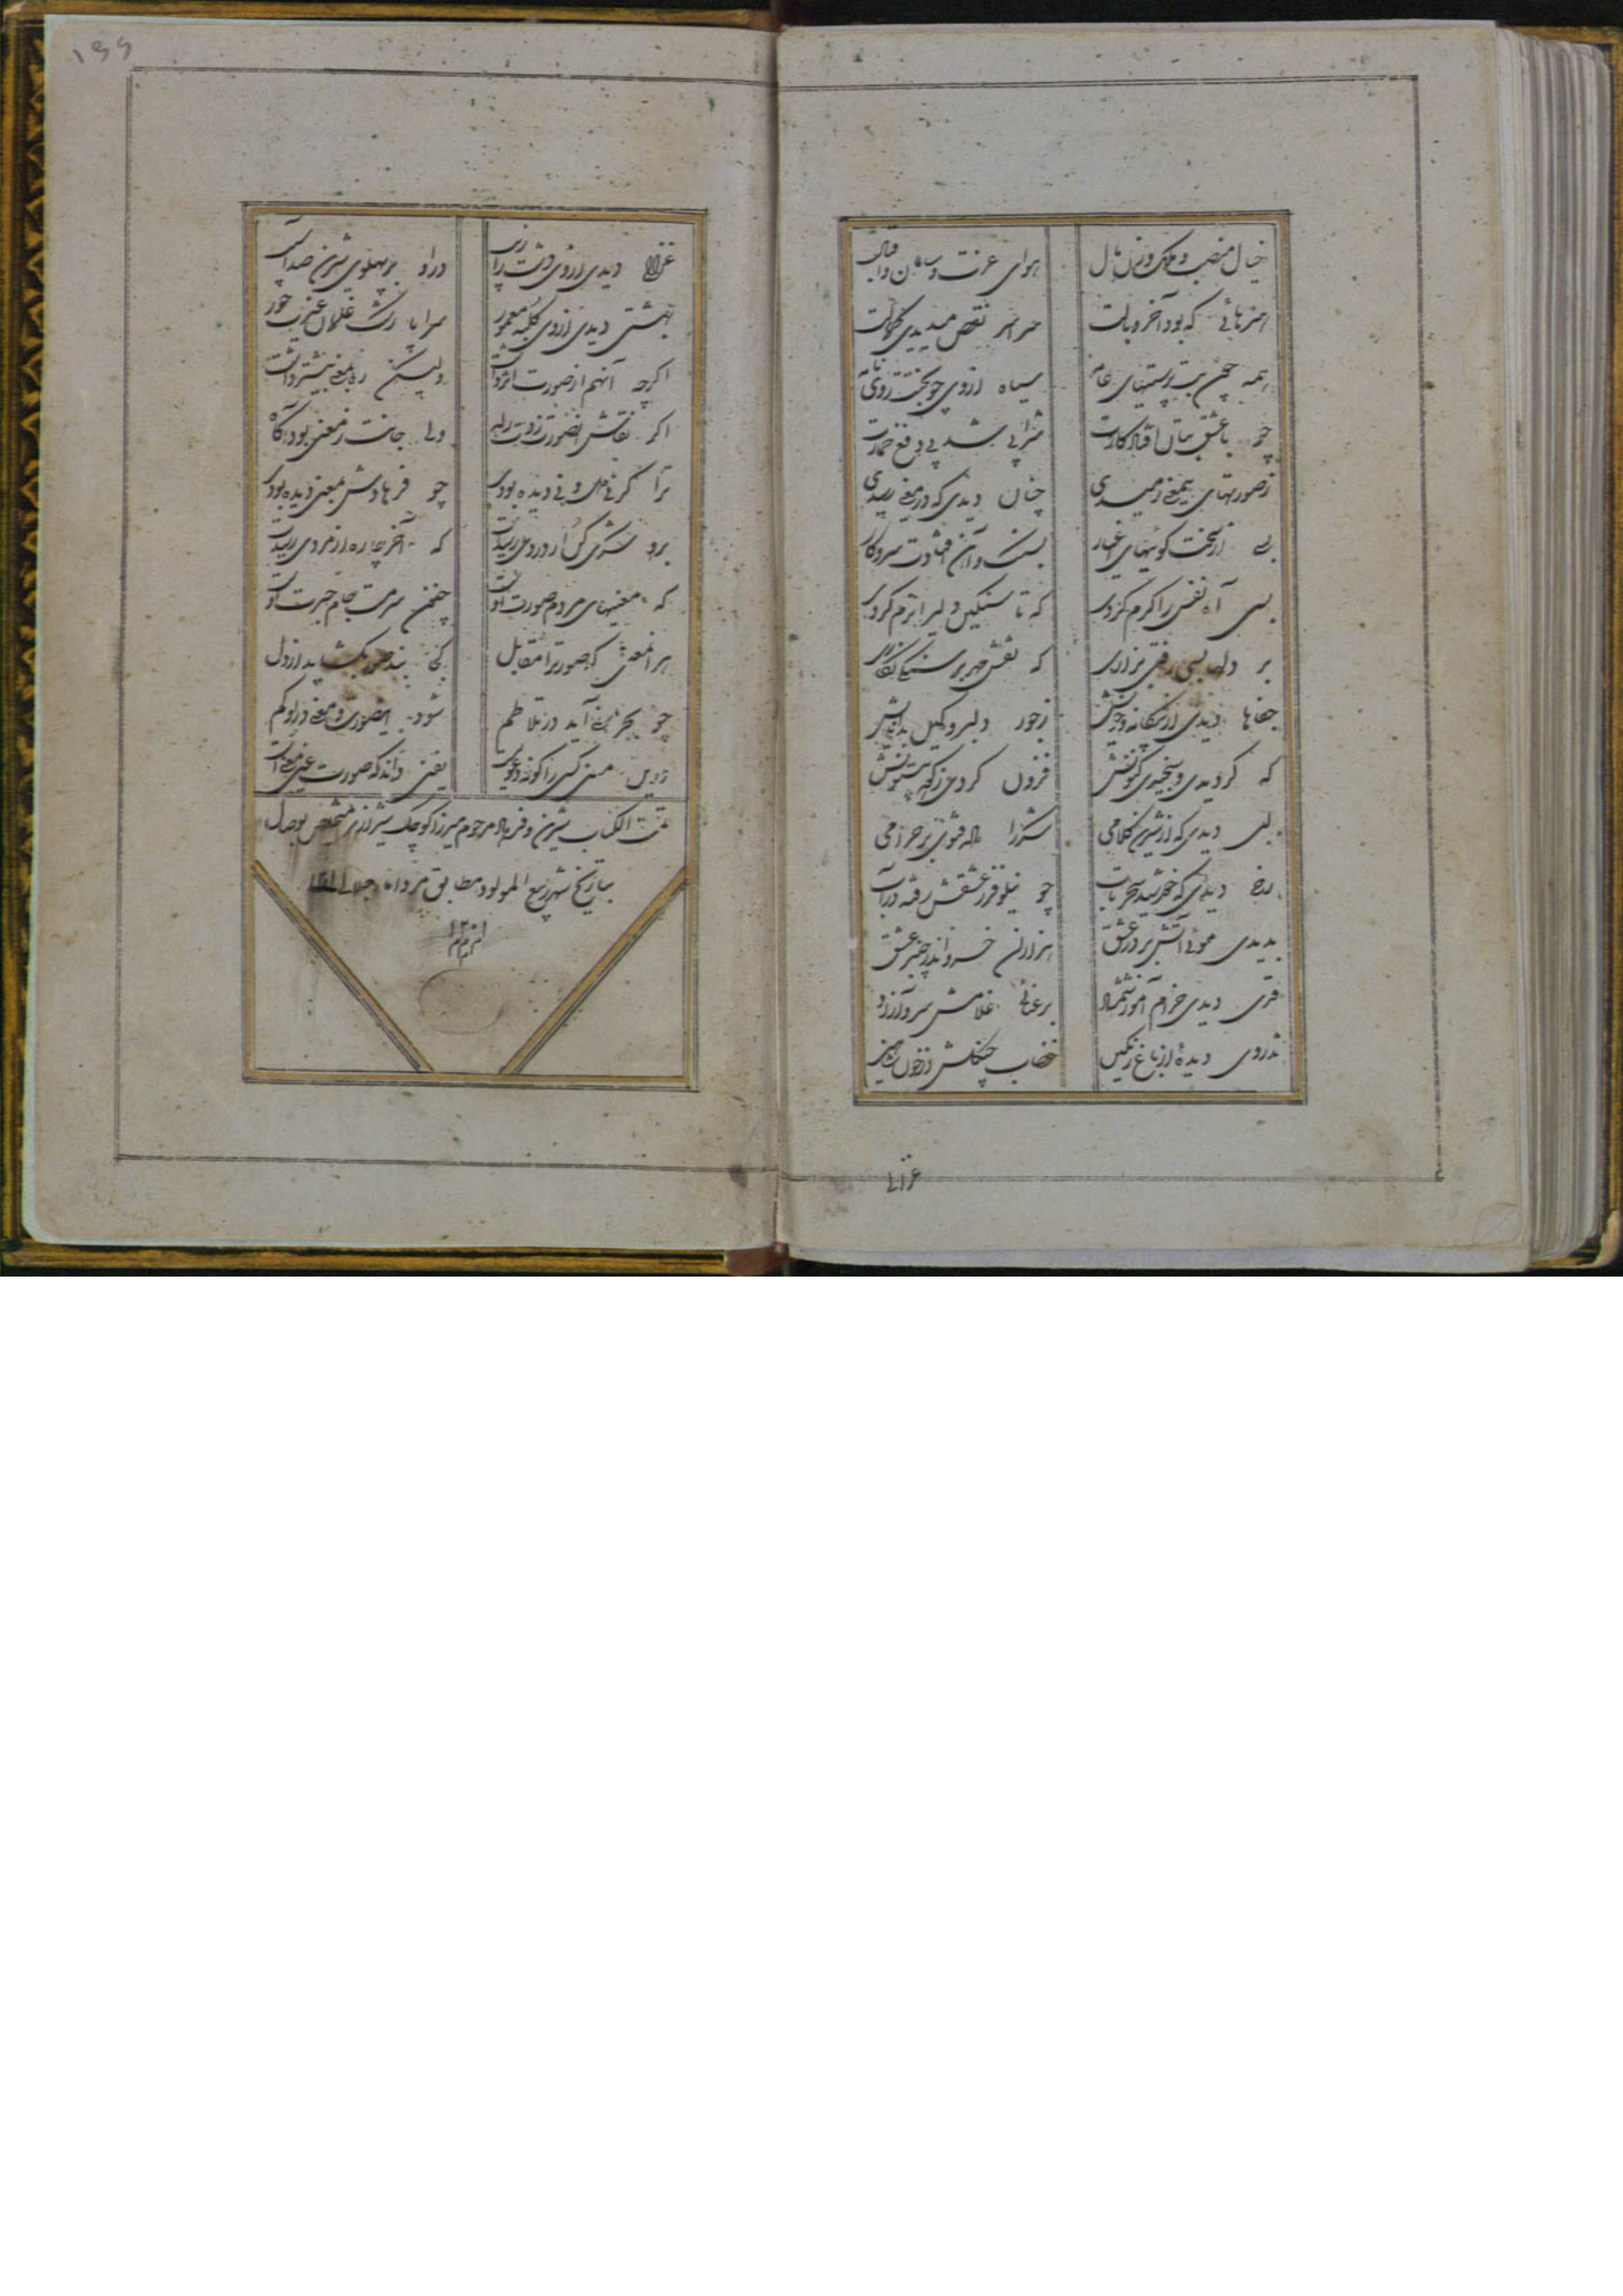 خیال منصب و ملک و زن و مال
هوای عزت و سامان و اقبال
هنرهائی که بود آخر وبالت
سراسر نقص میدیدی کمالت
همه چون بت پرستیهای عامه
سیاه از وی چو بختت روی نامه
چو با عشق بتان افتاد کارت
شرابی شد پی دفع خمارت
ز صورتهای بیمعنی رمیدی
چنان دیدی که در معنی رسیدی
بسی از سخت گوئیهای اغیار
بسنگ و آهن افتادت سر و کار
بسی آه نفس را گرم کردی
که تا سنگین دلی را نرم کردی
بر دلها بسی رفتی بزاری
که نقش مهر بر سنگی نگاری
جفاها دیدی از بیگانه و خویش
ز جور دلبر و
که گردیدی و سنجیدی بکونش
فزون کردی ز کوه بیستونش
لبی دیدی که از شیرین کلامی
شکر را
رخی دیدی که خورشید سحرتاب
چو نیلوفر ز عشقش رفته در آب
بدیدی موئی آتش پرور عشق
هزاران خسرو اندر چنبر عشق
قدی دیدی خرام آموز شمشاد
برعنائی غلامش سرو آزاد
تذروی دیده از باغ رنگین
خضاب چنگلش از خون
۱۶۶
غزالی دیدی از وی دشت را زیب
دراو بر پهلوی شیران صد آسیب
بهشتی دیدی از وی کلبه معمور
سراپا رشک غلمان غیرت حور
اگرچه آنهم از صورت اثر داشت
ولیکن ره بمعنی بیشتر داشت
اگر نقاش اینصورت زدت راه
ولی جانت ز معنی بود آگاه
ترا گر نی می و نی دیده بودی
چو فرهادش بمعنی دیده بودی
برو شکری کن ار دردی رسیدت
که آخر چاره از مردی رسیدت
که معنیهای مردم صورت اوست
چنین سرمست جام حیرت اوست
هر آنمعنی که صورت را مقابل
کجا بند صور بگشاید از دل
چو بحر معنی آید در تلاطم
شود اینصورت و معنی در او گم
ز وی کسی را کو نه دعوی است
یقین داند که صورت عین معنی است
تمت الکتاب شیرین و فرهاد مرحوم میرزا کوچک شیرازی متخلص بوصال
بتاریخ شهر ربیع المولود مطابق مرداماه جلالی